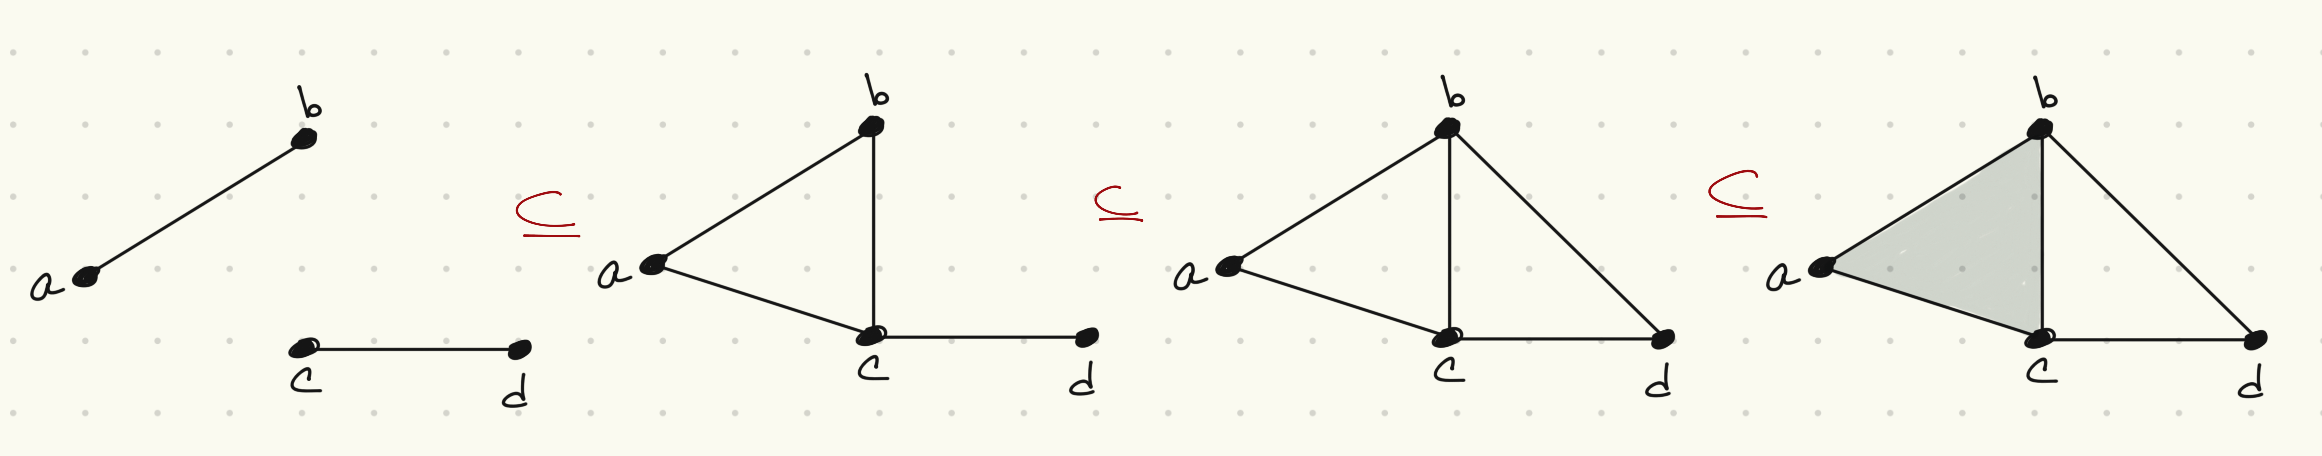 b
a
c
d
⊆
b
a
c
d
⊆
b
a
c
d
⊆
b
a
c
d